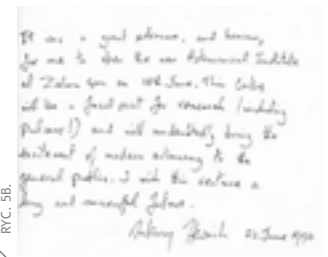 It was a great pleasure, and honour,
for me to open the new Astronomical Institute
at Zielona Gora on 10th June. This Centre
will be a focal point for research (including
pulsars!) and will undoubtedly bring the
excitement of modern astronomy to the
general public. I wish this venture a
long and successful future.
Antony Hewish 22 June
RYC. 5B.